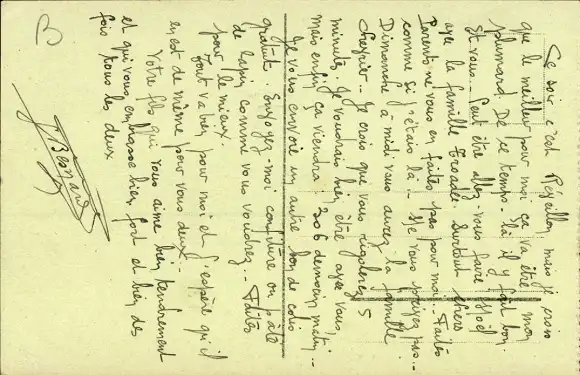 Ce soir c'est Réveillon, mais je crois
que le meilleur pour moi ça va être mon
plumard. De ce temps-là il y fait bon.
Et vous. Peut être allez-vous faire Noël
avec la famille Surtout chers
Parents ne vous en faites pas pour moi. Faites
comme si j'étais là. Ne vous privez pas..
Dimanche à midi vous aurez la famille
Cheyrier.. Je crois que vous rigolerez 5
minutes. Je voudrais bien être avec vous,
mais enfin ça viendra demain matin..
Je vous envoie un autre bon de colis
gratuit. Envoyez-moi confiture ou pâté
de lapin comme vous voudrez.. Faites
pour le mieux.
Tout va bien pour moi et j'espère qu'il
en est de même pour vous deux.
Votre fils qui vous aime bien tendrement
et qui vous embrasse bien fort et bien des
fois tous les deux
Besnard